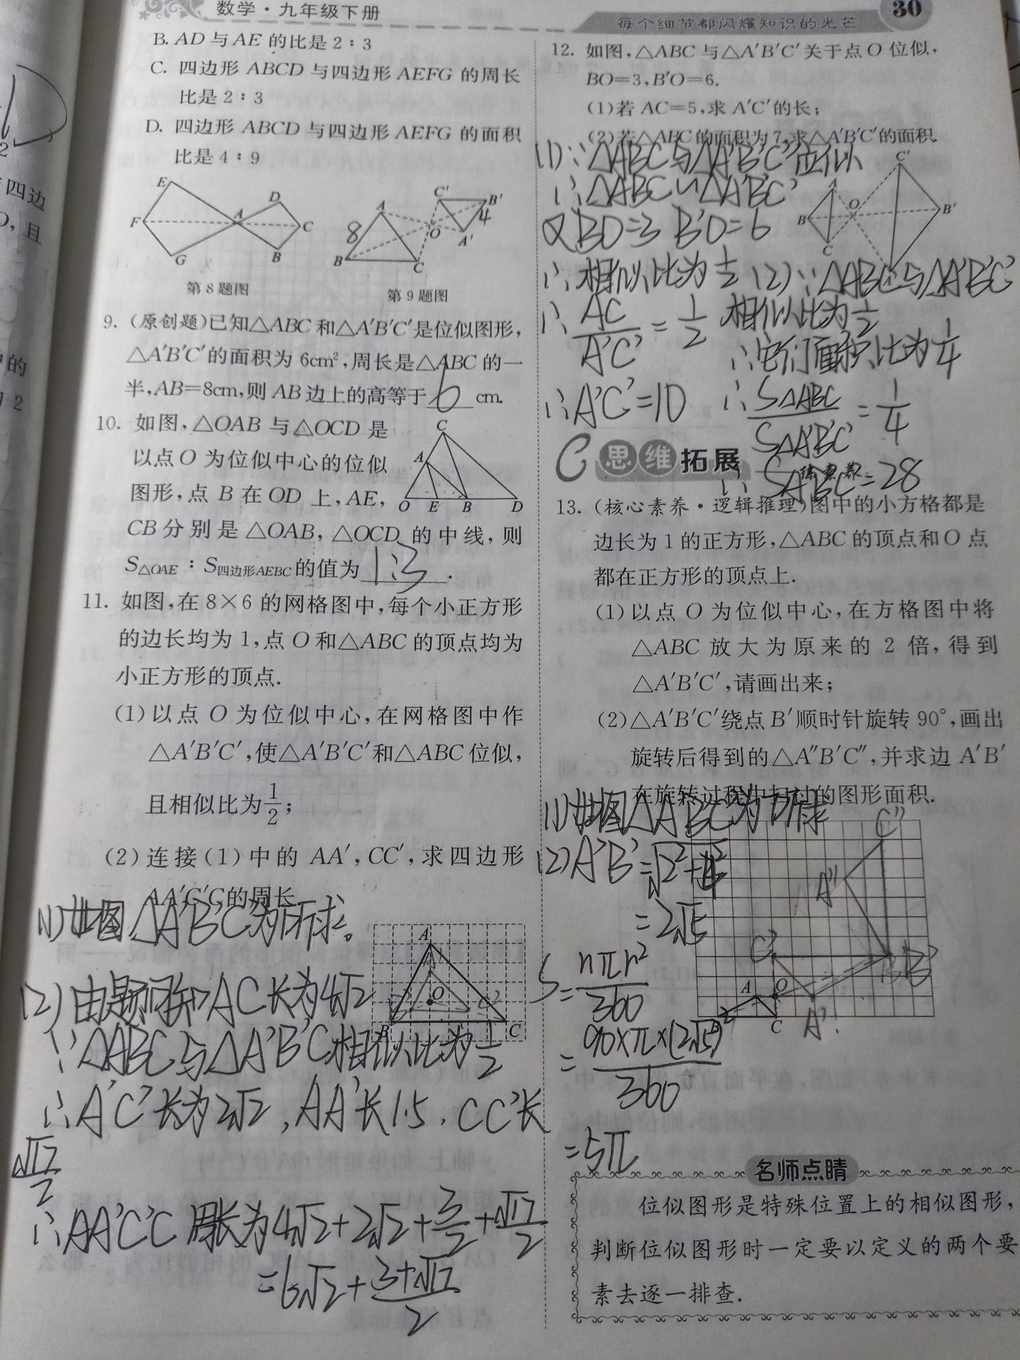 数学·九年级下册
每个细节都闪耀知识的光芒
30
B. AD 与 AE 的比是 2∶3
C. 四边形 ABCD 与四边形 AEFG 的周长
比是 2∶3
D. 四边形 ABCD 与四边形 AEFG 的面积
比是 4∶9
E
D
F
A
C
G
B
第 8 题图
C′
B′
A
4
8
O
A′
B
C
第 9 题图
9. (原创题)已知△ABC 和△A′B′C′是位似图形,
△A′B′C′的面积为 6cm²,周长是△ABC 的一
半,AB=8cm,则 AB 边上的高等于 6 cm.
10. 如图,△OAB 与△OCD 是
以点 O 为位似中心的位似
图形,点 B 在 OD 上,AE,
CB 分别是△OAB,△OCD 的中线,则
S△OAE∶S四边形AEBC的值为 1:3 .
C
A
O E B D
11. 如图,在 8×6 的网格图中,每个小正方形
的边长均为 1,点 O 和△ABC 的顶点均为
小正方形的顶点.
(1)以点 O 为位似中心,在网格图中作
△A′B′C′,使△A′B′C′和△ABC 位似,
且相似比为1/2;
(2)连接(1)中的 AA′,CC′,求四边形
AA′C′C的周长
(1)如图△A′B′C′为所求。
(2)由题可知AC长为4√2
∵△ABC与△A′B′C′相似比为1/2
∴A′C′长为2√2,AA′长1.5,CC′长
∴AA′C′C周长为4√2+2√2+3/2+
A
O
B
C
12. 如图,△ABC 与△A′B′C′关于点 O 位似,
BO=3,B′O=6.
(1)若 AC=5,求 A′C′的长;
(2)若△ABC的面积为7,求△A′B′C′的面积.
(1)∵△ABC与△A′B′C′位似
∴△ABC∽△A′B′C′
又BO=3 B′O=6
∴相似比为1/2
∴AC/A′C′=1/2
∴A′C′=10
(2)∵△ABC与△A′B′C′
相似比为1/2
∴它们面积比为1/4
∴S△ABC/S△A′B′C′=1/4
C′
A
B
O
B′
C
C 思维拓展
13. (核心素养·逻辑推理)图中的小方格都是
边长为 1 的正方形,△ABC 的顶点和 O 点
都在正方形的顶点上.
(1)以点 O 为位似中心,在方格图中将
△ABC 放大为原来的 2 倍,得到
△A′B′C′,请画出来;
(2)△A′B′C′绕点 B′顺时针旋转 90°,画出
旋转后得到的△A″B′C″,并求边 A′B′
在旋转过程中扫过的图形面积.
(1)如图△A′B′C′为所求
(2)A′B′=
=2√5
S=nπr²/360
=90×π×(2√5)²/360
=5π
C″
A″
C′
B′
A
O
C
A′
名师点睛
位似图形是特殊位置上的相似图形,
判断位似图形时一定要以定义的两个要
素去逐一排查.